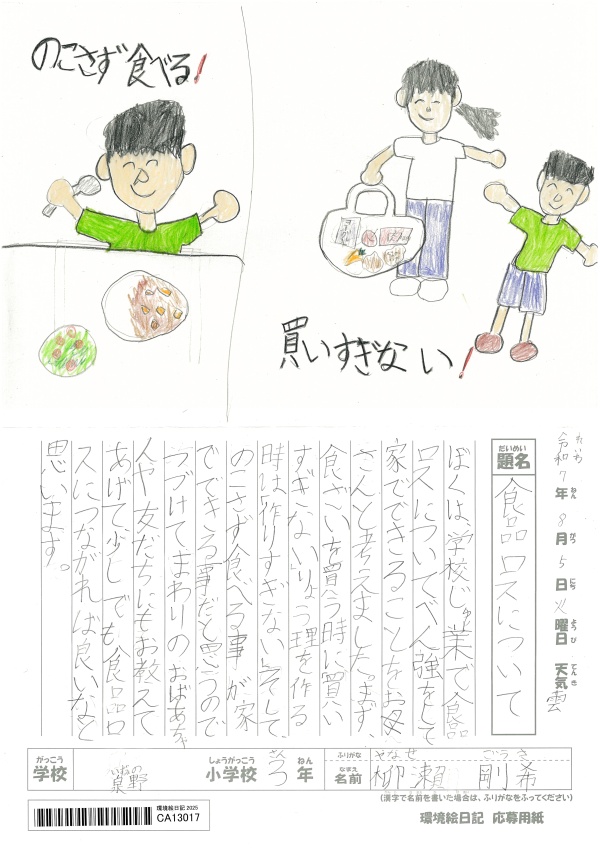 のこさず食べる!
買いすぎない!
令和7年8月5日火曜日 天気 雲
れいわ ねん がつ にち ようび てんき
だいめい
題名 食品ロスについて
ぼくは、学校じゅ業で食品
ロスについてべん強をして
家でできることをお母
さんと考えました。まず、
食ざいを買う時に買い
すぎない、りょう理を作る
時は「作りすぎない」そして、
のこさず食べる事が家
でできる事だと思うので
つづけてまわりのおばあちゃ
人や友だちにもお教えて
あげて少しでも食品ロ
スにつながれば良いなと
思います。
がっこう しょうがっこう さん ねん ふりがな やなせ ごうき
学校 小学校 三年 なまえ 名前 柳瀬 剛希
(漢字で名前を書いた場合は、ふりがなをふってください)
環境絵日記 2025
CA13017
環境絵日記 応募用紙